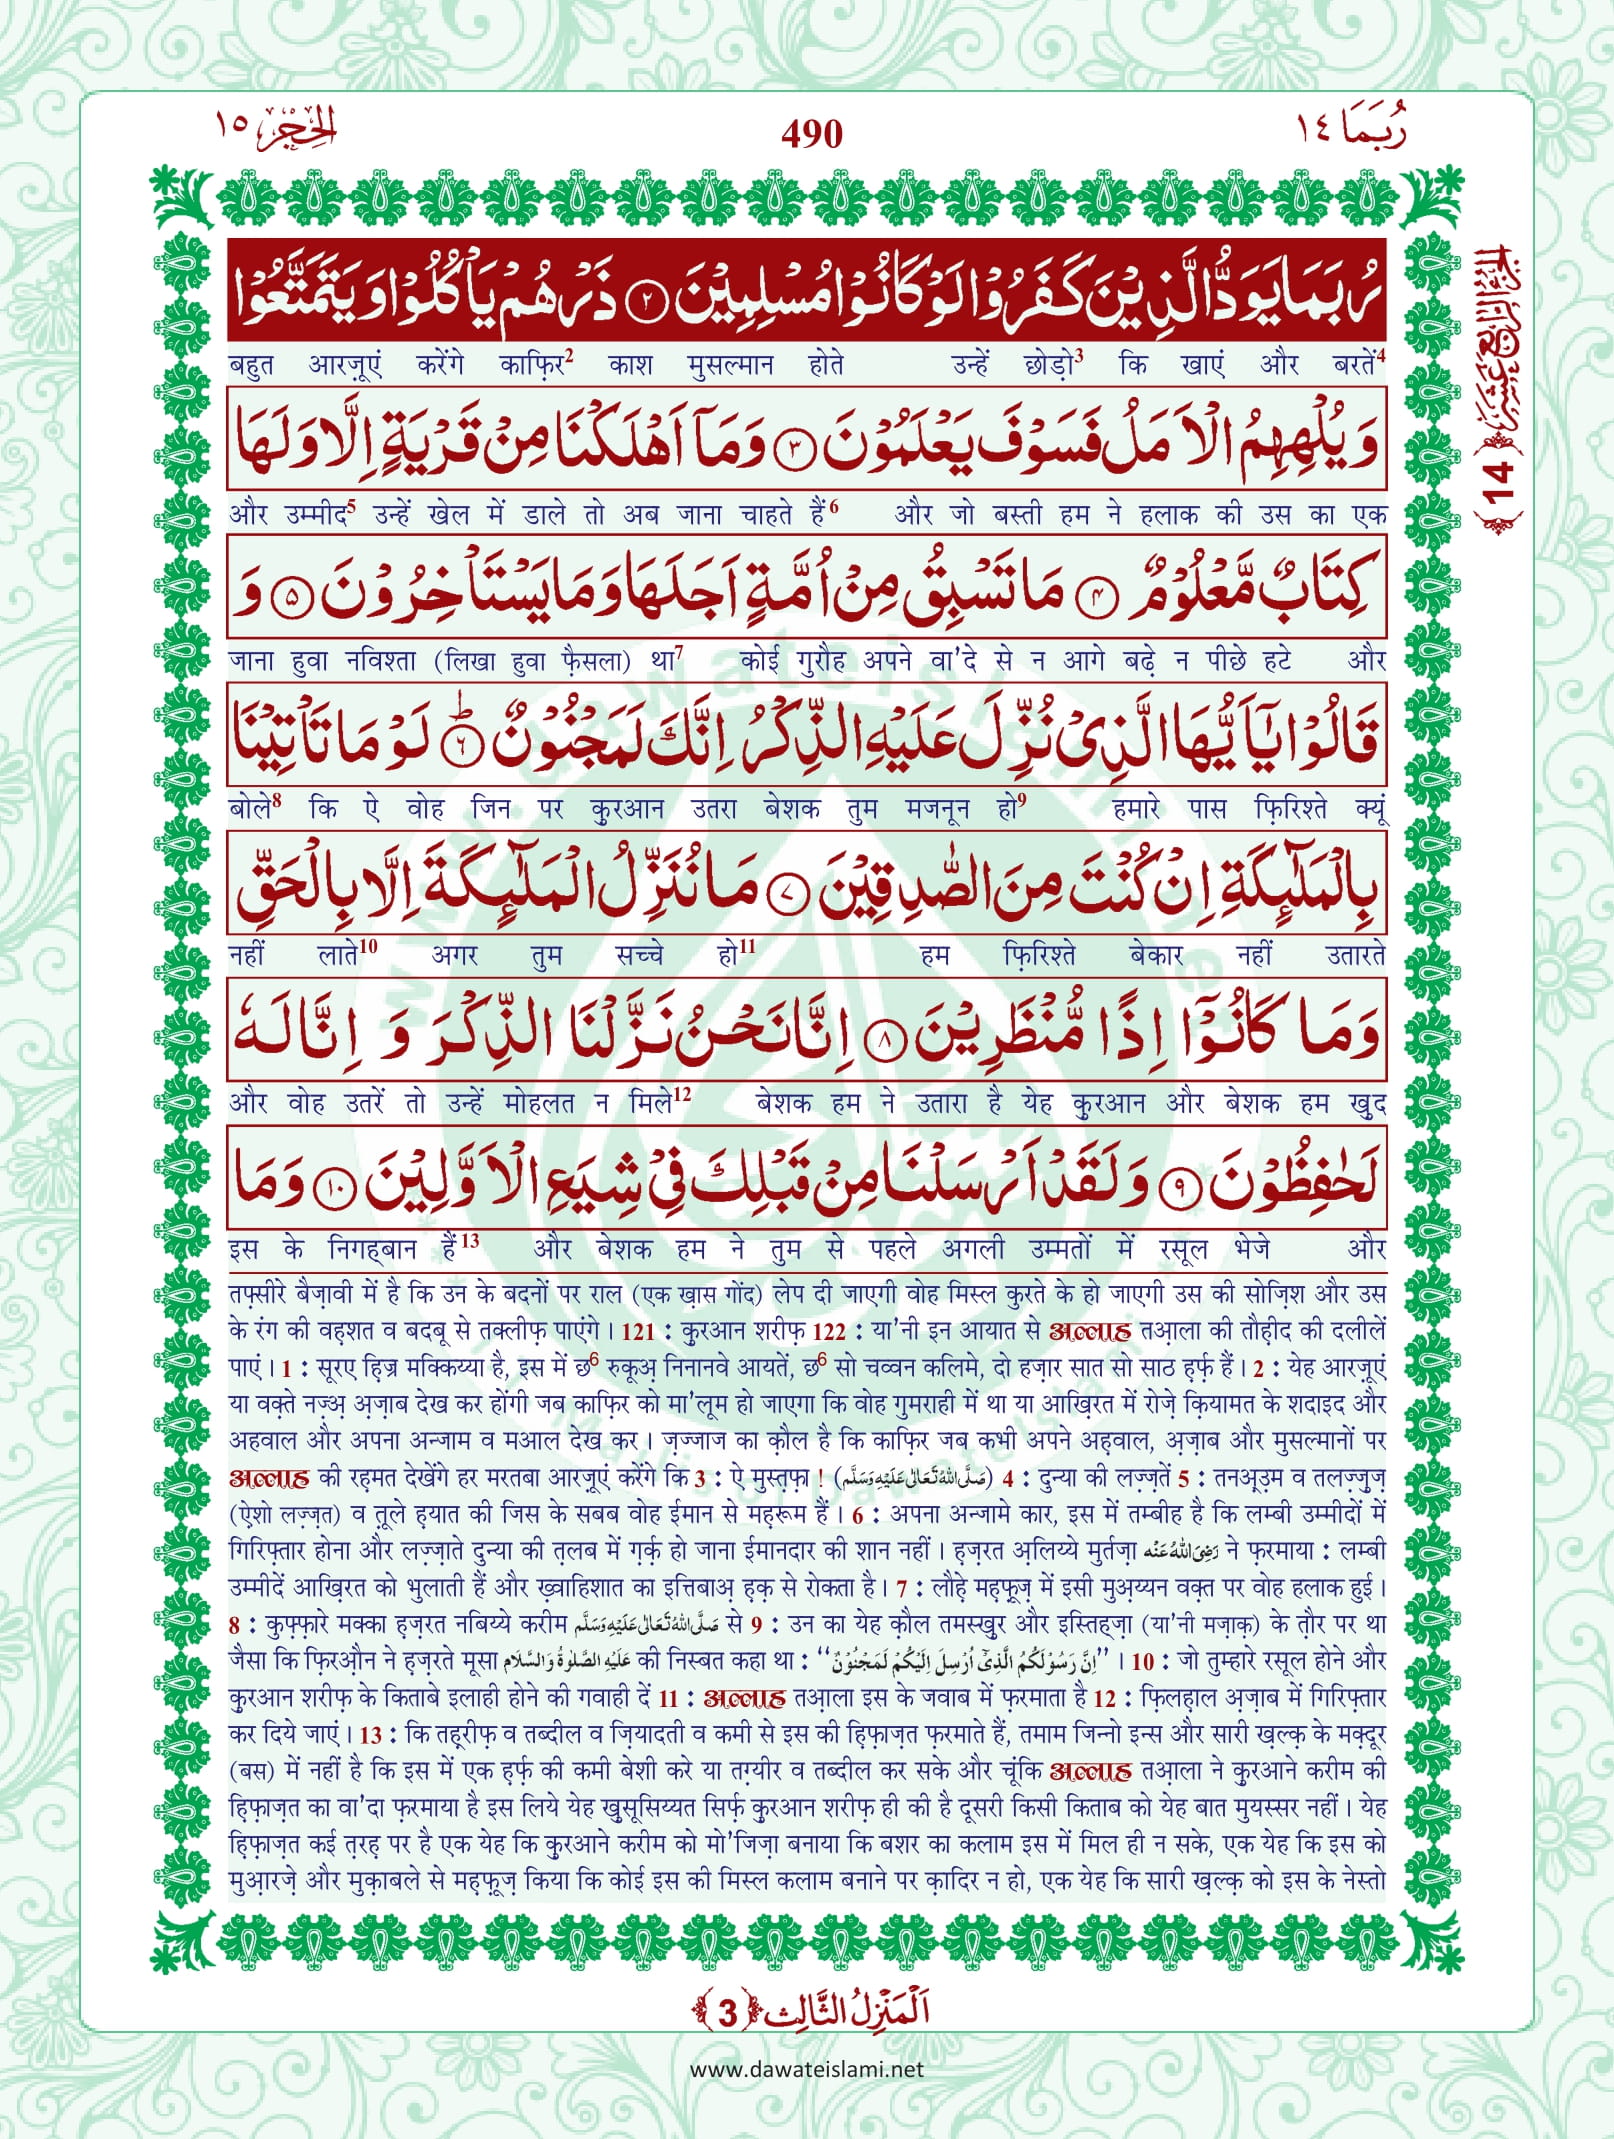 رُبَمَا ١٤
490
الحِجْر ١٥
رُبَمَا یَوَدُّ الَّذِیْنَ كَفَرُوْا لَوْ كَانُوْا مُسْلِمِیْنَ ﴿۲﴾ ذَرْهُمْ یَاْكُلُوْا وَ یَتَمَتَّعُوْا
बहुत आरज़ूएं करेंगे काफ़िर2 काश मुसल्मान होते उन्हें छोड़ो3 कि खाएं और बरतें4
وَ یُلْهِهِمُ الْاَمَلُ فَسَوْفَ یَعْلَمُوْنَ ﴿۳﴾ وَ مَاۤ اَهْلَكْنَا مِنْ قَرْیَةٍ اِلَّا وَ لَهَا
और उम्मीद5 उन्हें खेल में डाले तो अब जाना चाहते हैं6 और जो बस्ती हम ने हलाक की उस का एक
كِتَابٌ مَّعْلُوْمٌ ﴿۴﴾ مَا تَسْبِقُ مِنْ اُمَّةٍ اَجَلَهَا وَ مَا یَسْتَاْخِرُوْنَ ﴿۵﴾ وَ
जाना हुवा नविश्ता (लिखा हुवा फ़ैसला) था7 कोई गुरौह अपने वा'दे से न आगे बढ़े न पीछे हटे और
قَالُوْا یٰۤاَیُّهَا الَّذِیْ نُزِّلَ عَلَیْهِ الذِّكْرُ اِنَّكَ لَمَجْنُوْنٌ ﴿۶﴾ؕ لَوْ مَا تَاْتِیْنَا
बोले8 कि ऐ वोह जिन पर कुरआन उतरा बेशक तुम मजनून हो9 हमारे पास फ़िरिश्ते क्यूं
بِالْمَلٰٓىِٕكَةِ اِنْ كُنْتَ مِنَ الصّٰدِقِیْنَ ﴿۷﴾ مَا نُنَزِّلُ الْمَلٰٓىِٕكَةَ اِلَّا بِالْحَقِّ
नहीं लाते10 अगर तुम सच्चे हो11 हम फ़िरिश्ते बेकार नहीं उतारते
وَ مَا كَانُوْۤا اِذًا مُّنْظَرِیْنَ ﴿۸﴾ اِنَّا نَحْنُ نَزَّلْنَا الذِّكْرَ وَ اِنَّا لَهٗ
और वोह उतरें तो उन्हें मोहलत न मिले12 बेशक हम ने उतारा है येह कुरआन और बेशक हम खुद
لَحٰفِظُوْنَ ﴿۹﴾ وَ لَقَدْ اَرْسَلْنَا مِنْ قَبْلِكَ فِیْ شِیَعِ الْاَوَّلِیْنَ ﴿۱۰﴾ وَ مَا
इस के निगह्बान हैं13 और बेशक हम ने तुम से पहले अगली उम्मतों में रसूल भेजे और
तफ़्सीरे बैज़ावी में है कि उन के बदनों पर राल (एक ख़ास गोंद) लेप दी जाएगी वोह मिस्ल कुरते के हो जाएगी उस की सोज़िश और उस
के रंग की वह़शत व बदबू से तक्लीफ़ पाएंगे । 121 : कुरआन शरीफ़ 122 : या'नी इन आयात से अल्लाह तआ़ला की तौह़ीद की दलीलें
पाएं । 1 : सूरए ह़िज्र मक्किय्या है, इस में छ6 रुकूअ़ निनानवे आयतें, छ6 सो चव्वन कलिमे, दो हज़ार सात सो साठ ह़र्फ़ हैं । 2 : येह आरज़ूएं
या वक़्ते नज़्अ़ अ़ज़ाब देख कर होंगी जब काफ़िर को मा'लूम हो जाएगा कि वोह गुमराही में था या आख़िरत में रोज़े क़ियामत के शदाइद और
अहवाल और अपना अन्जाम व मआल देख कर । ज़ज्जाज का क़ौल है कि काफ़िर जब कभी अपने अह़वाल, अ़ज़ाब और मुसल्मानों पर
अल्लाह की रह़मत देखेंगे हर मरतबा आरज़ूएं करेंगे कि 3 : ऐ मुस्त़फ़ा ! (صَلَّى اللهُ تَعَالٰى عَلَيْهِ وَسَلَّم) 4 : दुन्या की लज़्ज़तें 5 : तनअ़्उ़म व तलज़्ज़ुज़
(ऐशो लज़्ज़त) व त़ूले ह़यात की जिस के सबब वोह ईमान से मह़रूम हैं । 6 : अपना अन्जामे कार, इस में तम्बीह है कि लम्बी उम्मीदों में
गिरिफ़्तार होना और लज़्ज़ाते दुन्या की त़लब में ग़र्क़ हो जाना ईमानदार की शान नहीं । ह़ज़रत अ़लिय्ये मुर्तज़ा رَضِىَ اللهُ عَنْه ने फ़रमाया : लम्बी
उम्मीदें आख़िरत को भुलाती हैं और ख़्वाहिशात का इत्तिबाअ़ ह़क़ से रोकता है । 7 : लौह़े मह़फ़ूज़ में इसी मुअ़य्यन वक़्त पर वोह हलाक हुई ।
8 : कुफ़्फ़ारे मक्का ह़ज़रत नबिय्ये करीम صَلَّى اللهُ تَعَالٰى عَلَيْهِ وَسَلَّم से 9 : उन का येह क़ौल तमस्ख़ुर और इस्तिह्ज़ा (या'नी मज़ाक़) के त़ौर पर था
जैसा कि फ़िरऔ़न ने ह़ज़रते मूसा عَلَيْهِ الصَّلٰوةُ وَالسَّلَام की निस्बत कहा था : ‘‘اِنَّ رَسُوْلَكُمُ الَّذِیْۤ اُرْسِلَ اِلَیْكُمْ لَمَجْنُوْنٌ’’ । 10 : जो तुम्हारे रसूल होने और
कुरआन शरीफ़ के किताबे इलाही होने की गवाही दें 11 : अल्लाह तआ़ला इस के जवाब में फ़रमाता है 12 : फ़िलह़ाल अ़ज़ाब में गिरिफ़्तार
कर दिये जाएं । 13 : कि तह़रीफ़ व तब्दील व ज़ियादती व कमी से इस की ह़िफ़ाज़त फ़रमाते हैं, तमाम जिन्नो इन्स और सारी ख़ल्क़ के मक़्दूर
(बस) में नहीं है कि इस में एक ह़र्फ़ की कमी बेशी करे या तग़्यीर व तब्दील कर सके और चूंकि अल्लाह तआ़ला ने कुरआने करीम की
ह़िफ़ाज़त का वा'दा फ़रमाया है इस लिये येह ख़ुसूसिय्यत सिर्फ़ कुरआन शरीफ़ ही की है दूसरी किसी किताब को येह बात मुयस्सर नहीं । येह
ह़िफ़ाज़त कई त़रह़ पर है एक येह कि कुरआने करीम को मो'जिज़ा बनाया कि बशर का कलाम इस में मिल ही न सके, एक येह कि इस को
मुआ़रज़े और मुक़ाबले से मह़फ़ूज़ किया कि कोई इस की मिस्ल कलाम बनाने पर क़ादिर न हो, एक येह कि सारी ख़ल्क़ को इस के नेस्तो
الجُزْءُ الرَّابِعُ عَشَر ﴿14﴾
اَلْمَنْزِلُ الثَّالِث ﴿3﴾
www.dawateislami.net